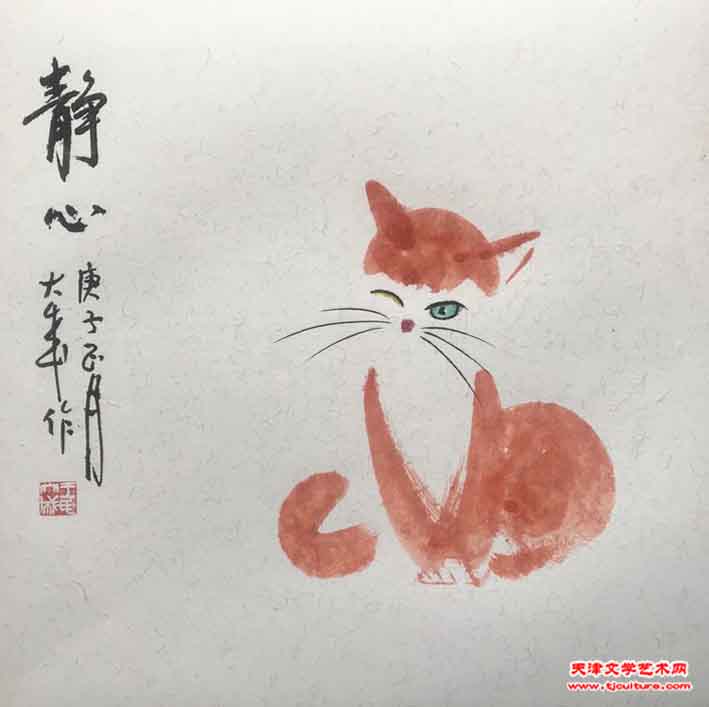 静心
庚子正月
大年作
天津文学艺术网
www.tjculture.com